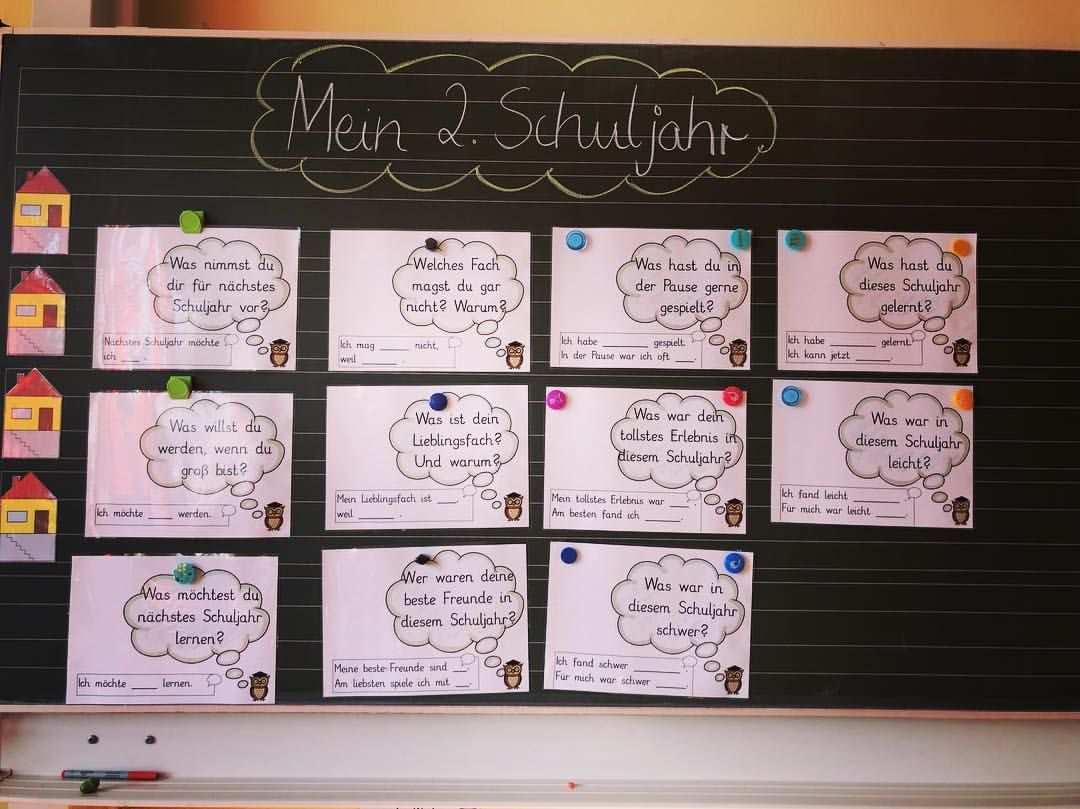 Mein 2. Schuljahr
Was nimmst du
dir für nächstes
Schuljahr vor?
Nächstes Schuljahr möchte
ich ____.
Welches Fach
magst du gar
nicht? Warum?
Ich mag ____ nicht,
weil ____.
Was hast du in
der Pause gerne
gespielt?
Ich habe ____ gespielt.
In der Pause war ich oft ____.
Was hast du
dieses Schuljahr
gelernt?
Ich habe ____ gelernt.
Ich kann jetzt ____.
Was willst du
werden, wenn du
groß bist?
Ich möchte ____ werden.
Was ist dein
Lieblingsfach?
Und warum?
Mein Lieblingsfach ist ____,
weil ____.
Was war dein
tollstes Erlebnis in
diesem Schuljahr?
Mein tollstes Erlebnis war ____.
Am besten fand ich ____.
Was war in
diesem Schuljahr
leicht?
Ich fand leicht ____.
Für mich war leicht ____.
Was möchtest du
nächstes Schuljahr
lernen?
Ich möchte ____ lernen.
Wer waren deine
beste Freunde in
diesem Schuljahr?
Meine beste Freunde sind ____.
Am liebsten spiele ich mit ____.
Was war in
diesem Schuljahr
schwer?
Ich fand schwer ____.
Für mich war schwer ____.